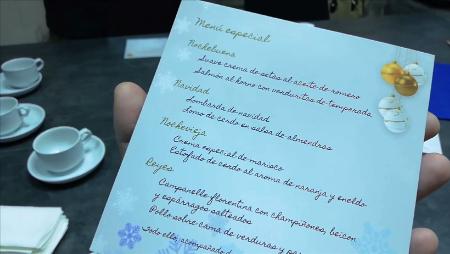 Menú especial
Nochebuena
Suave crema de setas al aceite de romero
Salmón al horno con verduritas de temporada
Navidad
Lombarda de navidad
Lomo de cerdo en salsa de almendras
Nochevieja
Crema especial de marisco
Estofado de cerdo al aroma de naranja y eneldo
Reyes
Campanella florentina con champiñones, beicon
y espárragos salteados
Pollo sobre cama de verduras y
Todo ello acompañado